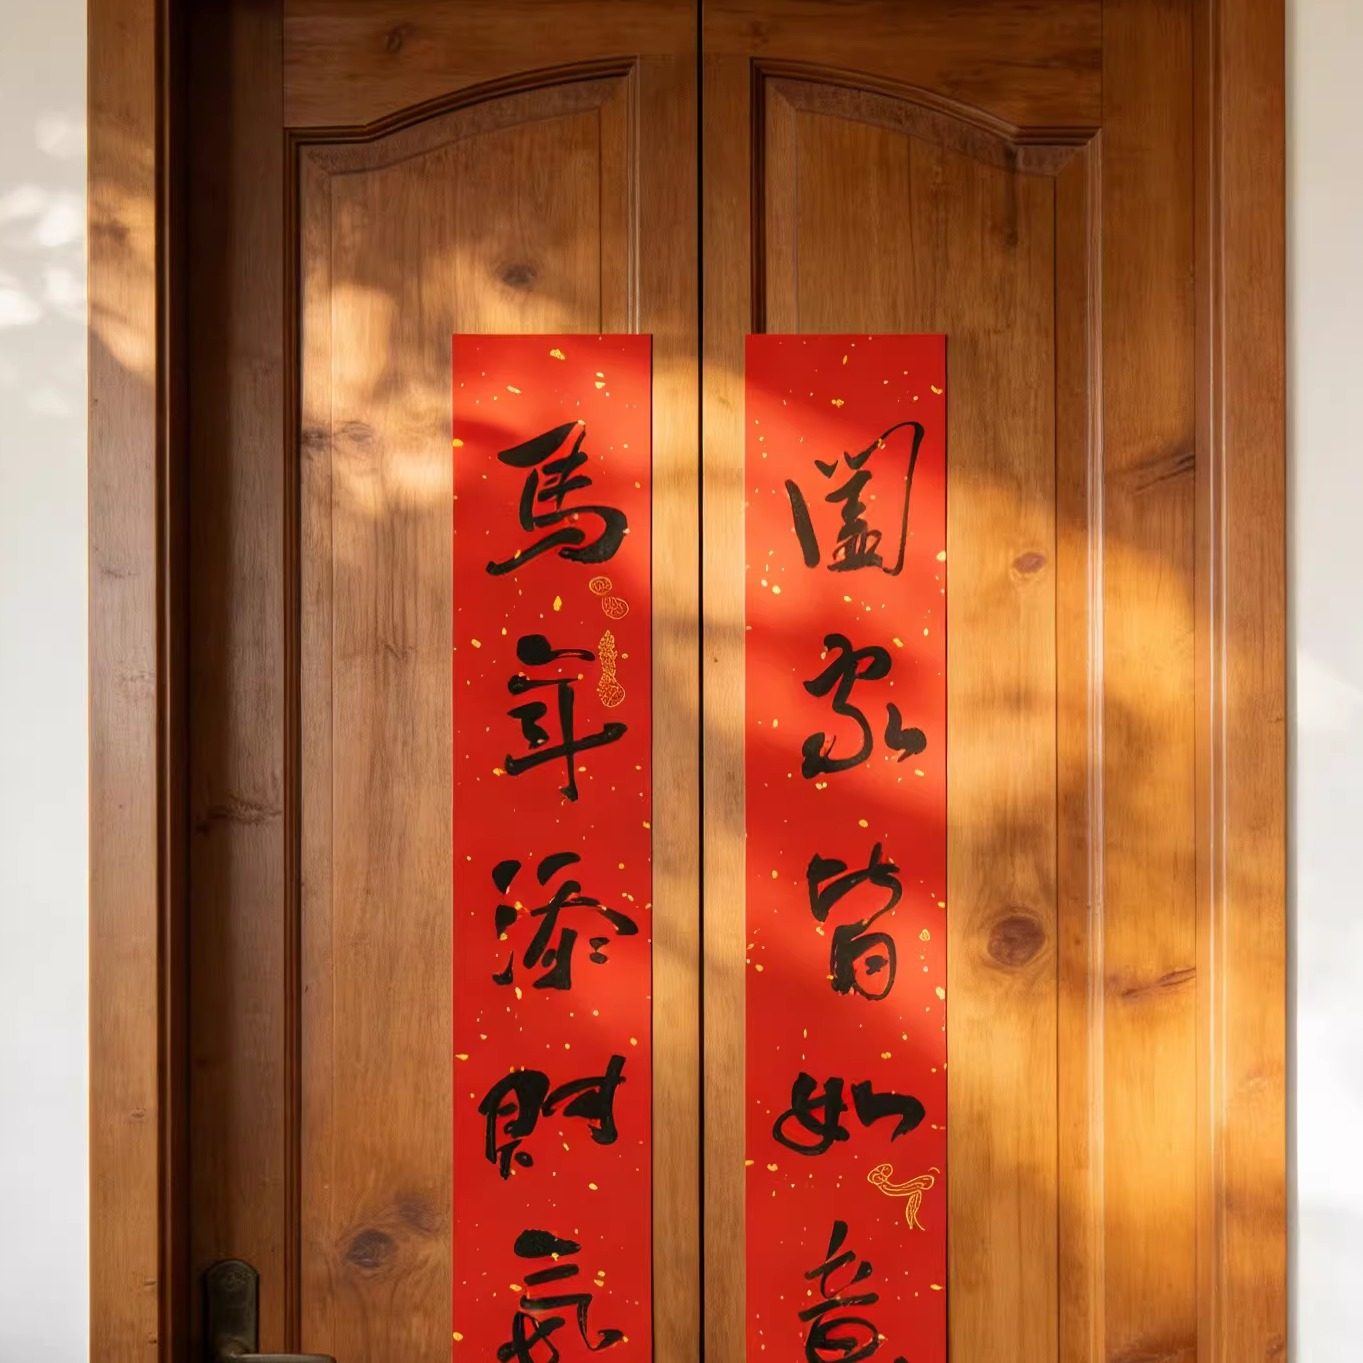 闔家皆如意
馬年添財氣